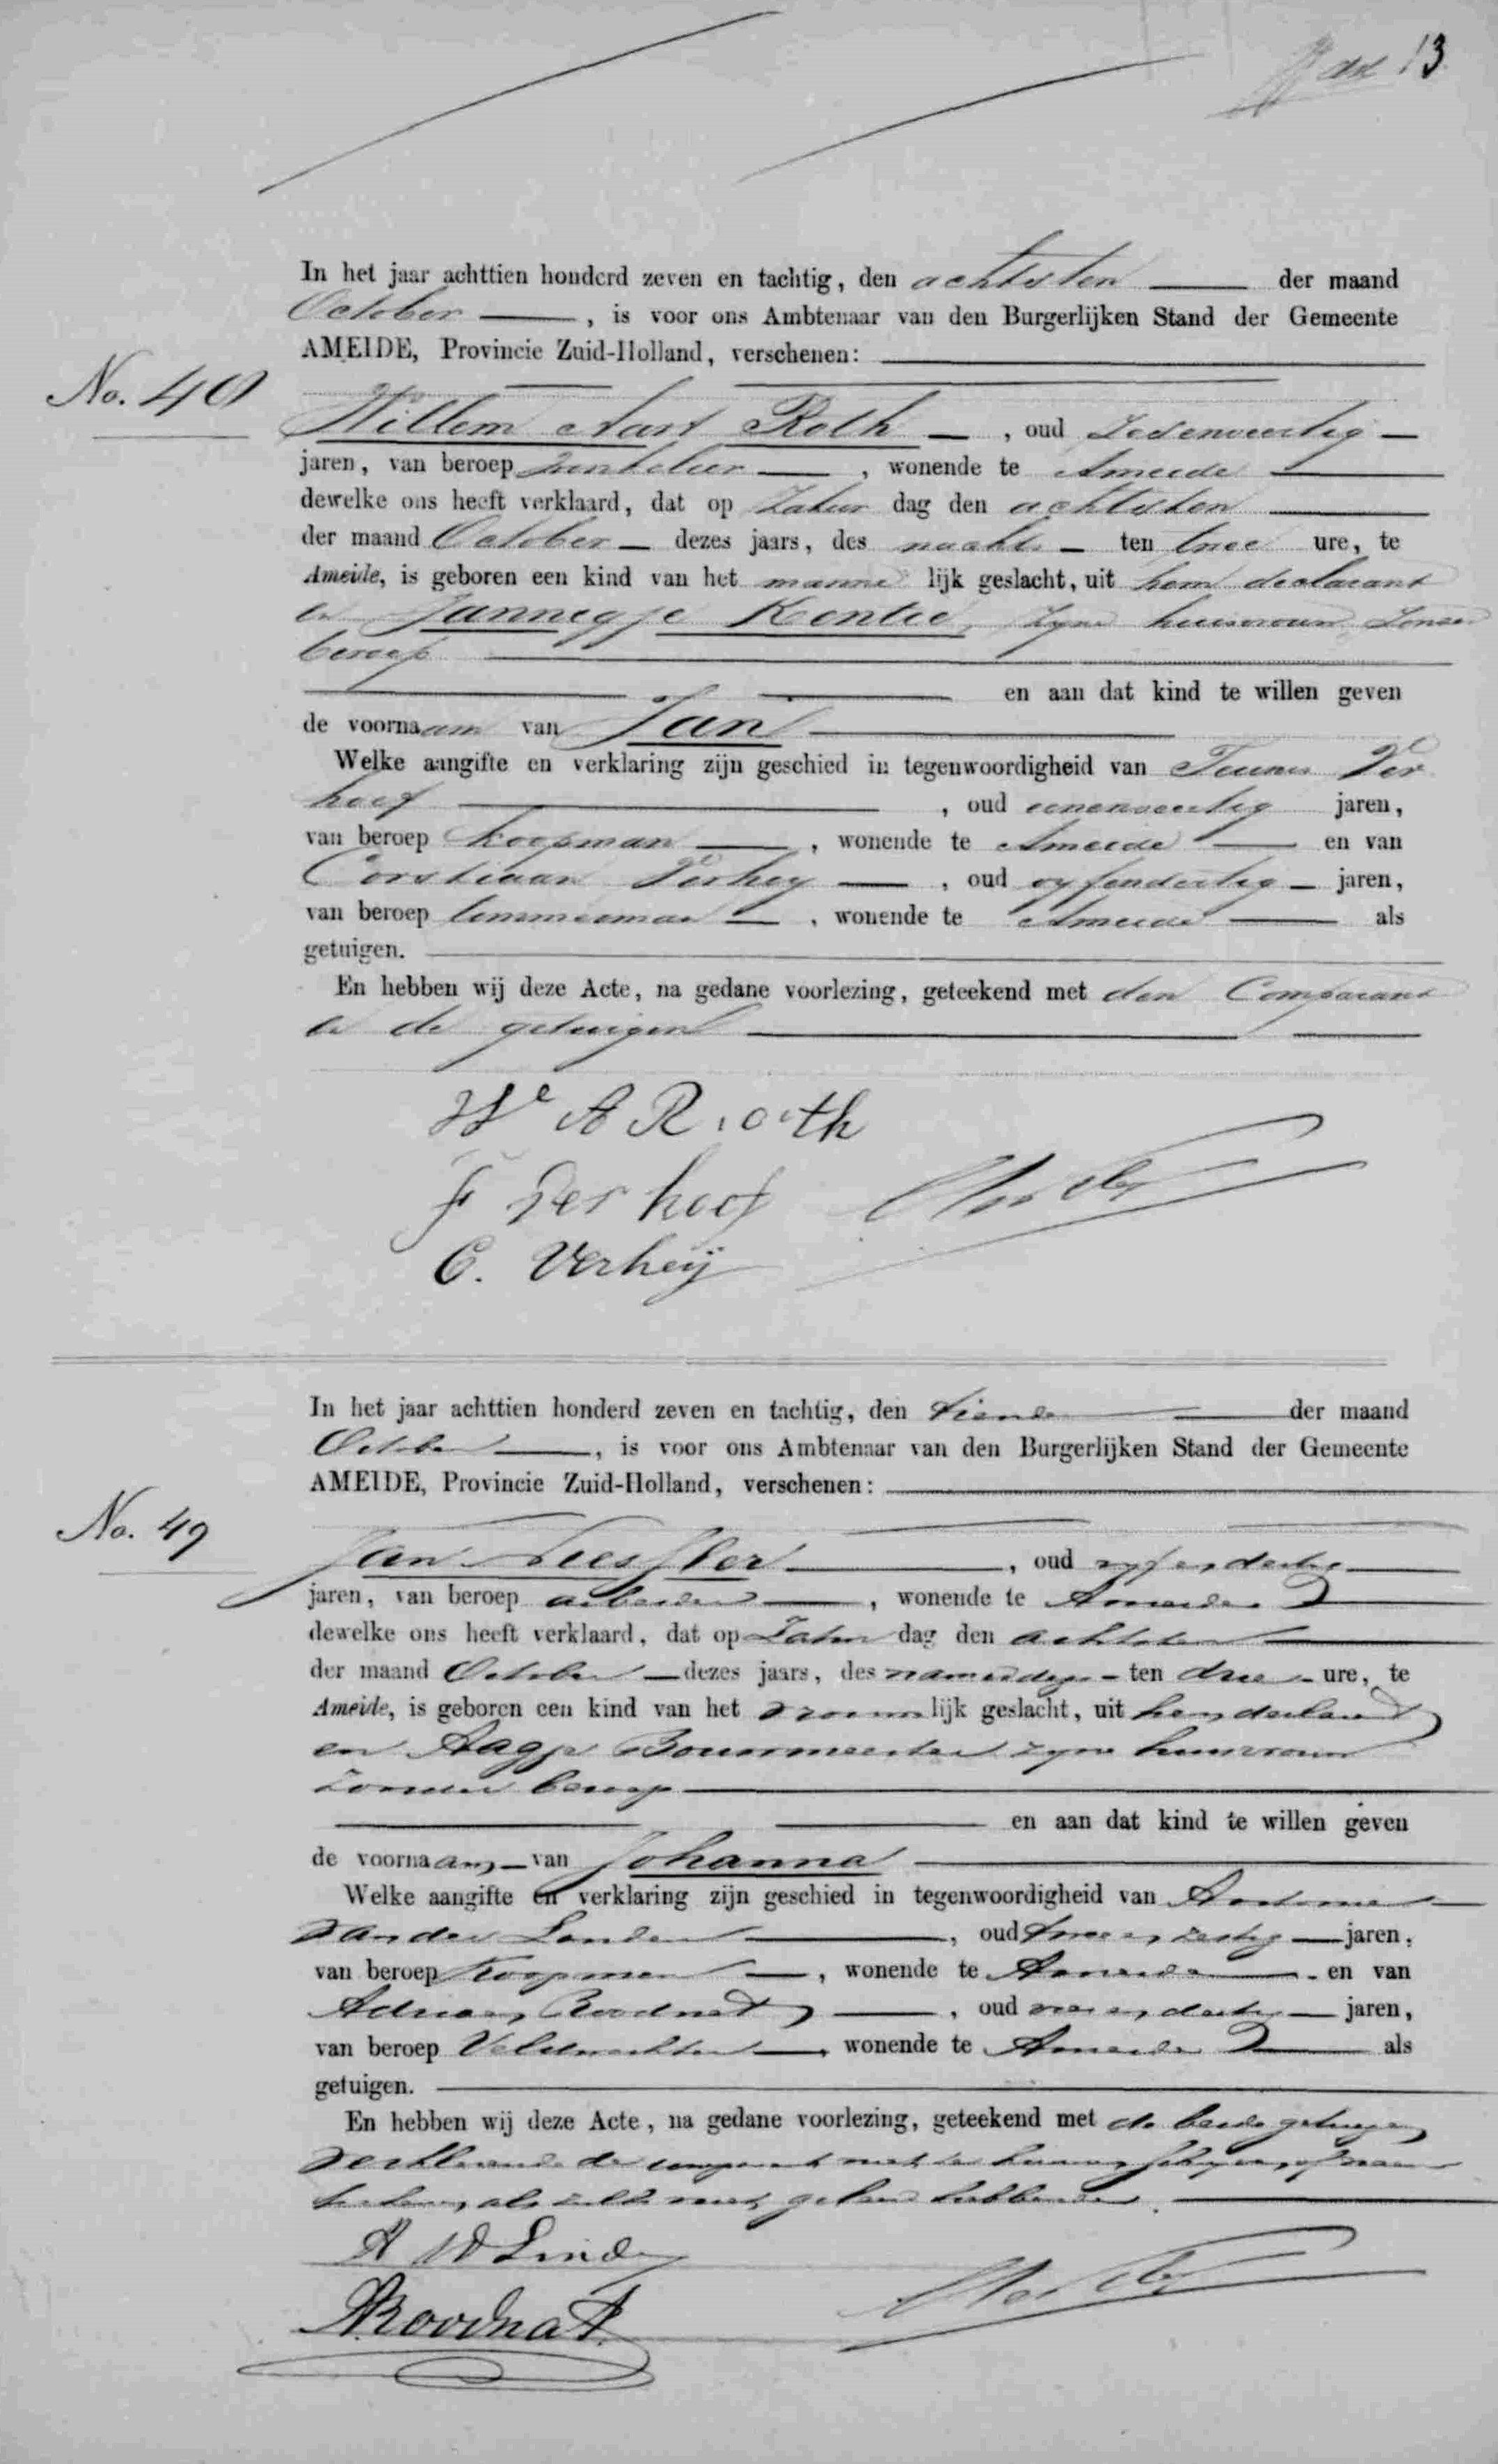 13
In het jaar achttien honderd zeven en tachtig, den achtsten der maand
October, is voor ons Ambtenaar van den Burgerlijken Stand der Gemeente
AMEIDE, Provincie Zuid-Holland, verschenen:
No. 48
Willem Aart Roth, oud zevenveertig
jaren, van beroep winkelier, wonende te Ameide
dewelke ons heeft verklaard, dat op Zatur dag den achtsten
der maand October dezes jaars, des nachts ten twee ure, te
Ameide, is geboren een kind van het manne lijk geslacht, uit hem declarant
en Jannegje Kentie, zyne huisvrouw zonder
beroep
en aan dat kind te willen geven
de voornaam van Jan
Welke aangifte en verklaring zijn geschied in tegenwoordigheid van Teunis Ver
hoef, oud eenenveertig jaren,
van beroep koopman, wonende te Ameide en van
Corstiaan Verhey, oud vyfendertig jaren,
van beroep timmerman, wonende te Ameide als
getuigen.
En hebben wij deze Acte, na gedane voorlezing, geteekend met den Comparant
en de getuigen
Wm A Rooth
T Verhoef
C. Verheij
In het jaar achttien honderd zeven en tachtig, den tiende der maand
October, is voor ons Ambtenaar van den Burgerlijken Stand der Gemeente
AMEIDE, Provincie Zuid-Holland, verschenen:
No. 49
Jan, oud vyfendertig
jaren, van beroep arbeider, wonende te Ameide
dewelke ons heeft verklaard, dat op Zatur dag den achtsten
der maand October dezes jaars, des namiddags ten drie ure, te
Ameide, is geboren een kind van het vrouwe lijk geslacht, uit hem declarant
en Aagje Bouwmeester zyne huisvrouw
zonder beroep
en aan dat kind te willen geven
de voornaam van Johanna
Welke aangifte en verklaring zijn geschied in tegenwoordigheid van
van der Linden, oud twee en zestig jaren,
van beroep Koopman, wonende te Ameide en van
Adriaan Roodnat, oud vier en dertig jaren,
van beroep Veldwachter, wonende te Ameide als
getuigen.
En hebben wij deze Acte, na gedane voorlezing, geteekend met de beide getuigen
verklarende de comparant niet te kunnen schryven of naam
teekenen, als zulks niet geleerd hebbende.
A VD Linden
ARoodnat